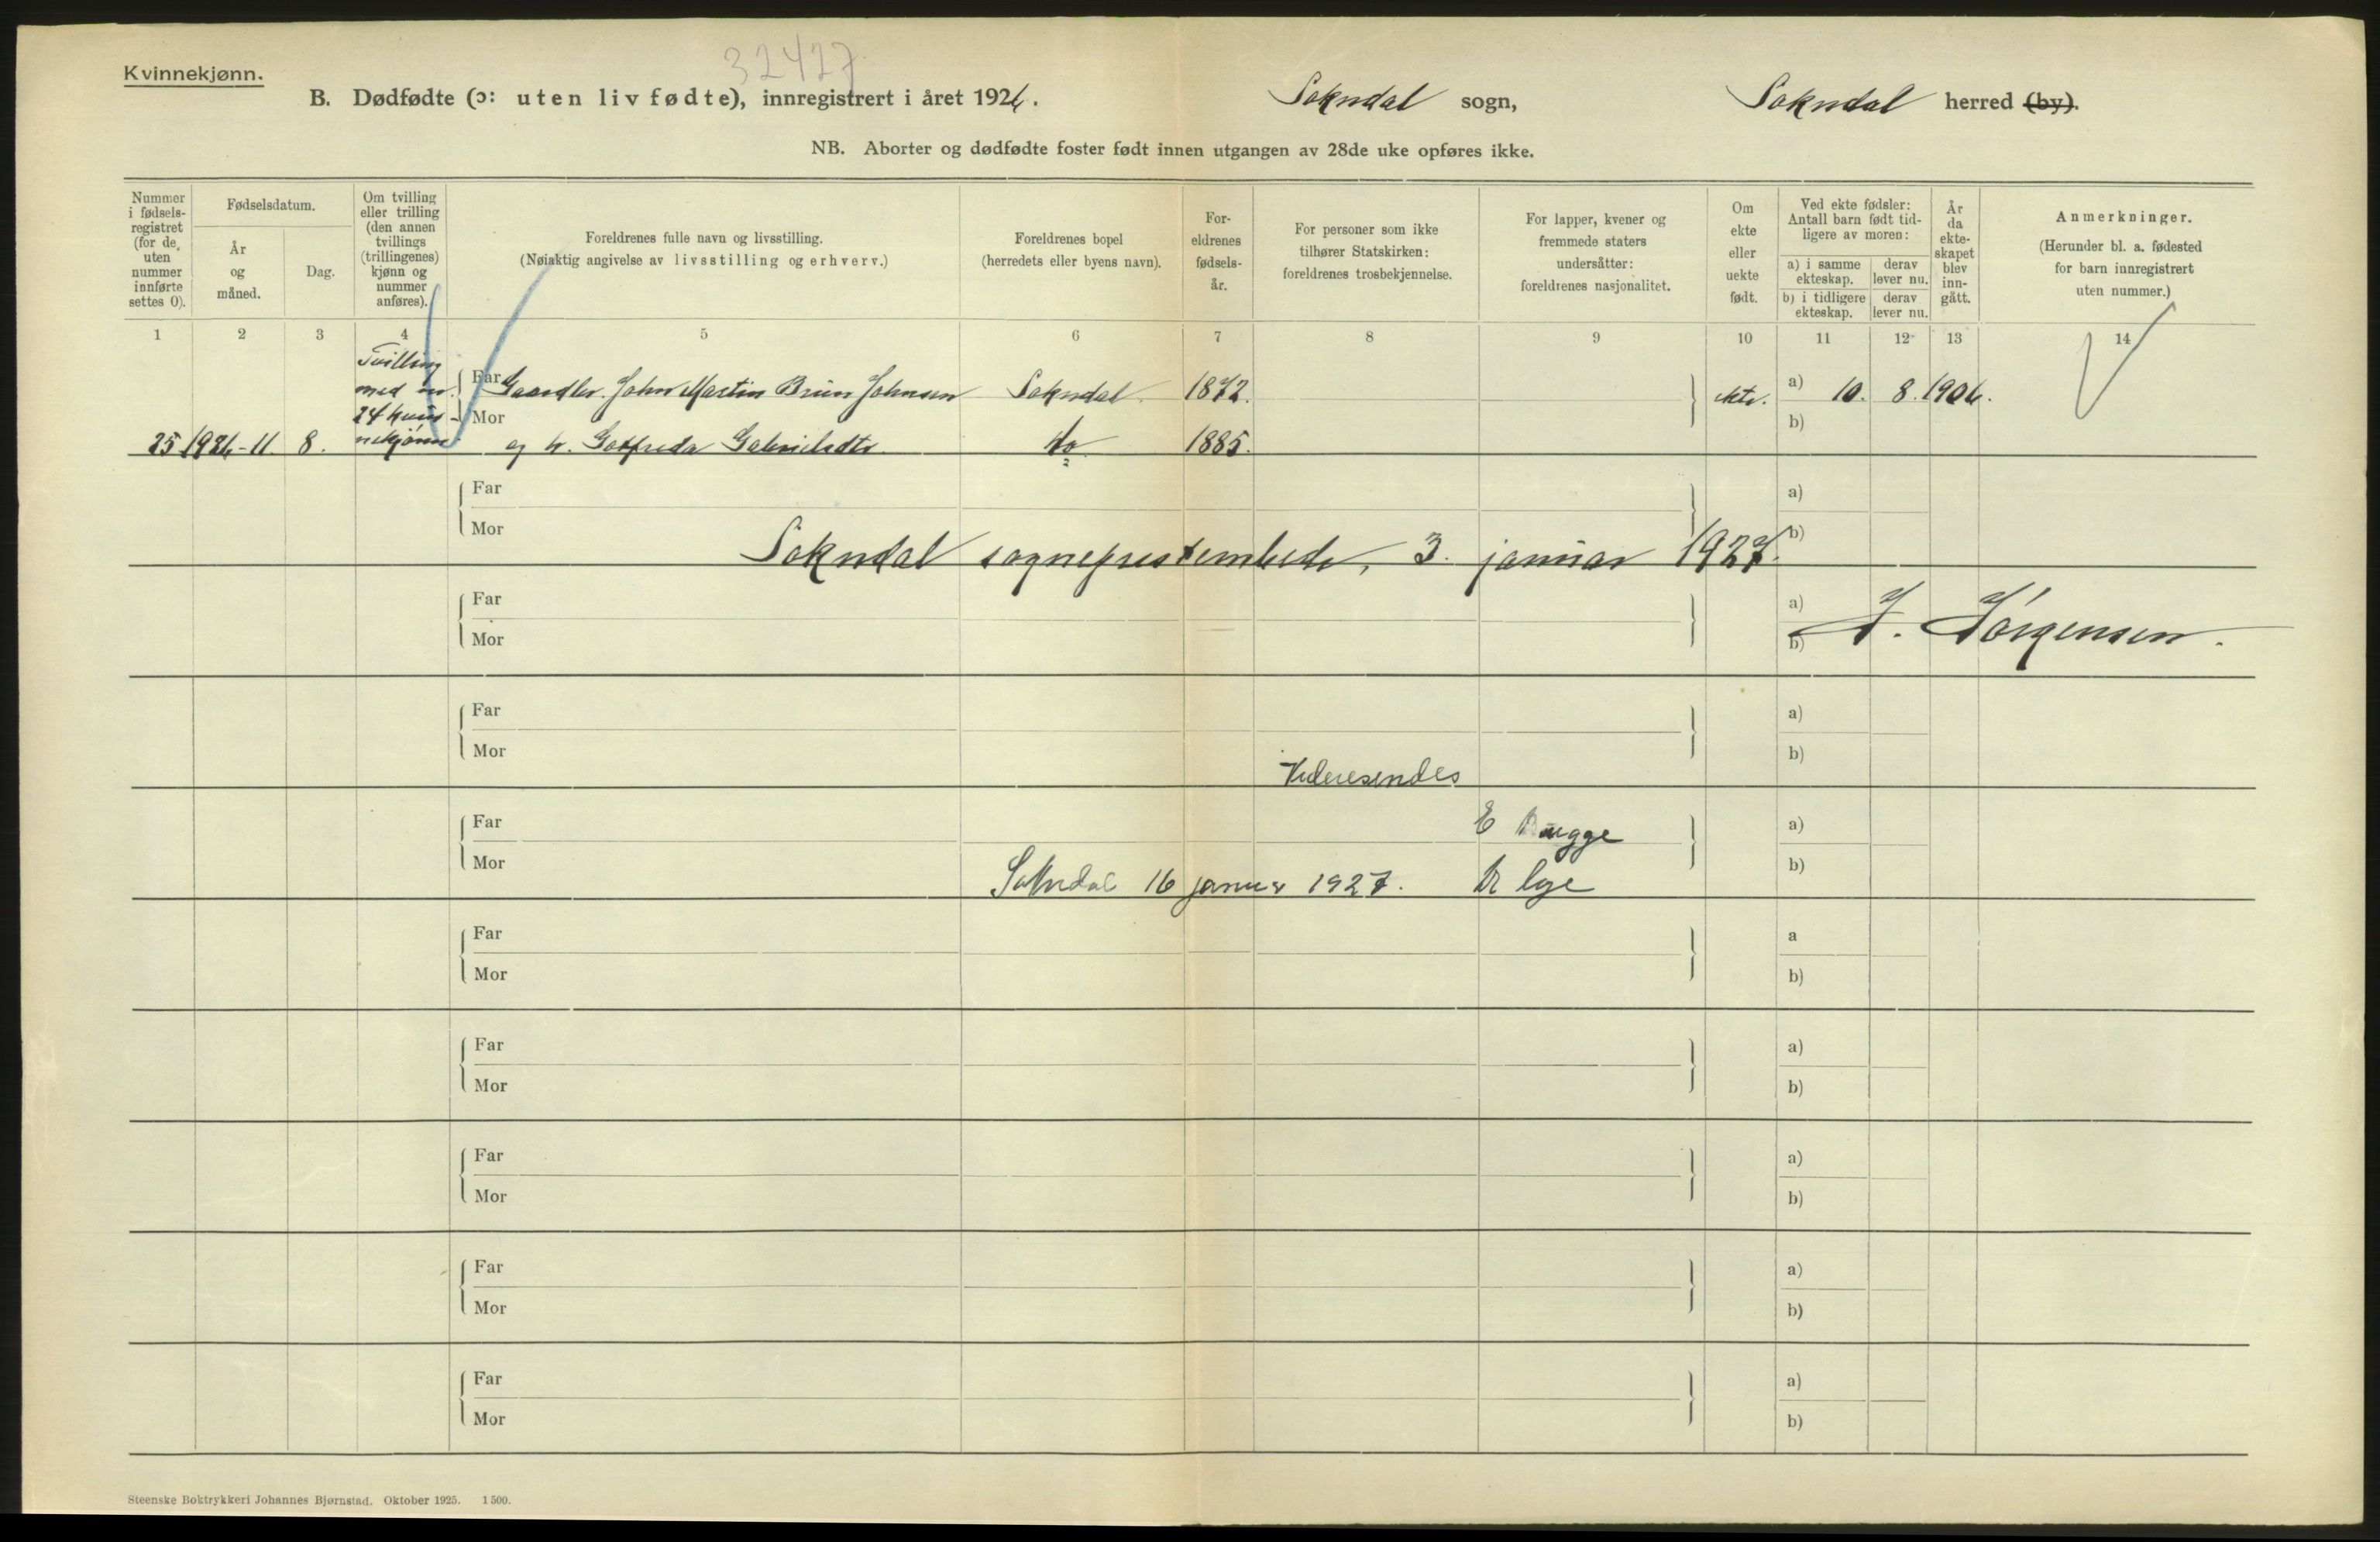 Kvinnekjønn.
32427
B. Dødfødte (ɔ: uten liv fødte), innregistrert i året 1926. Sokndal sogn, Sokndal herred (by).
NB. Aborter og dødfødte foster født innen utgangen av 28de uke opføres ikke.
Nummer i fødsels-registret (for de uten nummer innførte settes 0).
Fødselsdatum.
År og måned.
Dag.
Om tvilling eller trilling (den annen tvillings (trillingenes) kjønn og nummer anføres).
Foreldrenes fulle navn og livsstilling.
(Nøiaktig angivelse av livsstilling og erhverv.)
Foreldrenes bopel
(herredets eller byens navn).
For-eldrenes fødsels-år.
For personer som ikke
tilhører Statskirken:
foreldrenes trosbekjennelse.
For lapper, kvener og
fremmede staters
undersåtter:
foreldrenes nasjonalitet.
Om ekte eller uekte født.
Ved ekte fødsler:
Antall barn født tid-
ligere av moren:
a) i samme ekteskap.
derav lever nu.
b) i tidligere ekteskap.
derav lever nu.
År da ekte-skapet blev inn-gått.
Anmerkninger.
(Herunder bl. a. fødested
for barn innregistrert
uten nummer.)
1 2 3 4 5 6 7 8 9 10 11 12 13 14
Tvilling
med nr.
24 kvin-
nekjønn.
Far Gaardbr. John Martin Bruun Johnsen Sokndal. 1872. ekte. a) 10. 8. 1906.
Mor b)
25 1926-11. 8. og h. Gotfreda Gabrielsdtr. do 1885.
Far a)
Mor b)
Sokndal sogneprestembede, 3. januar 1927.
Far a)
Mor b)
J. Jørgensen.
Far a)
Mor b)
Videresendes
Far a)
E Bugge
Mor b)
Sokndal 16 januar 1927. Dr lge
Far a
Mor b)
Far a)
Mor b)
Far a)
Mor b)
Far a)
Mor b)
Far a)
Mor b)
Steenske Boktrykkeri Johannes Bjørnstad. Oktober 1925. 1500.